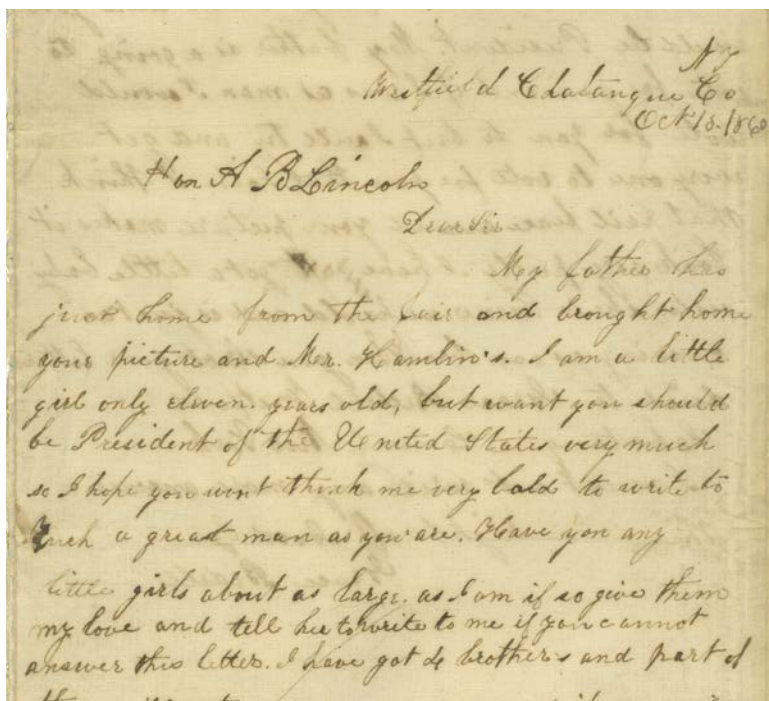 N Y
Westfield Chatauque Co
Oct 15. 1860
Hon A B Lincoln
Dear Sir
My father has
just home from the fair and brought home
your picture and Mr. Hamlin's. I am a little
girl only eleven years old, but want you should
be President of the United States very much
so I hope you wont think me very bold to write to
such a great man as you are. Have you any
little girls about as large as I am if so give them
my love and tell her to write to me if you cannot
answer this letter. I have got 4 brothers and part of